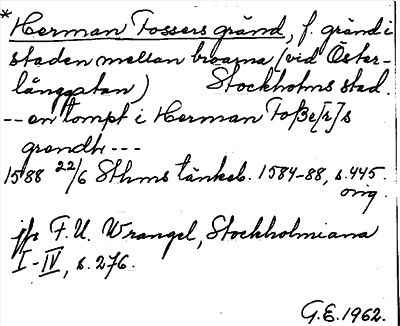 * Herman Fossers gränd, f. gränd i
staden mellan broarna (vid Öster-
långgatan) Stockholms stad.
-- en tompt i Herman Foße[r]s
grendh ---
1588 22/6 Sthms tänkeb. 1584-88, s. 445.
orig.
jfr F. U. Wrangel, Stockholmiana
I-IV, s. 276.
G.E. 1962.